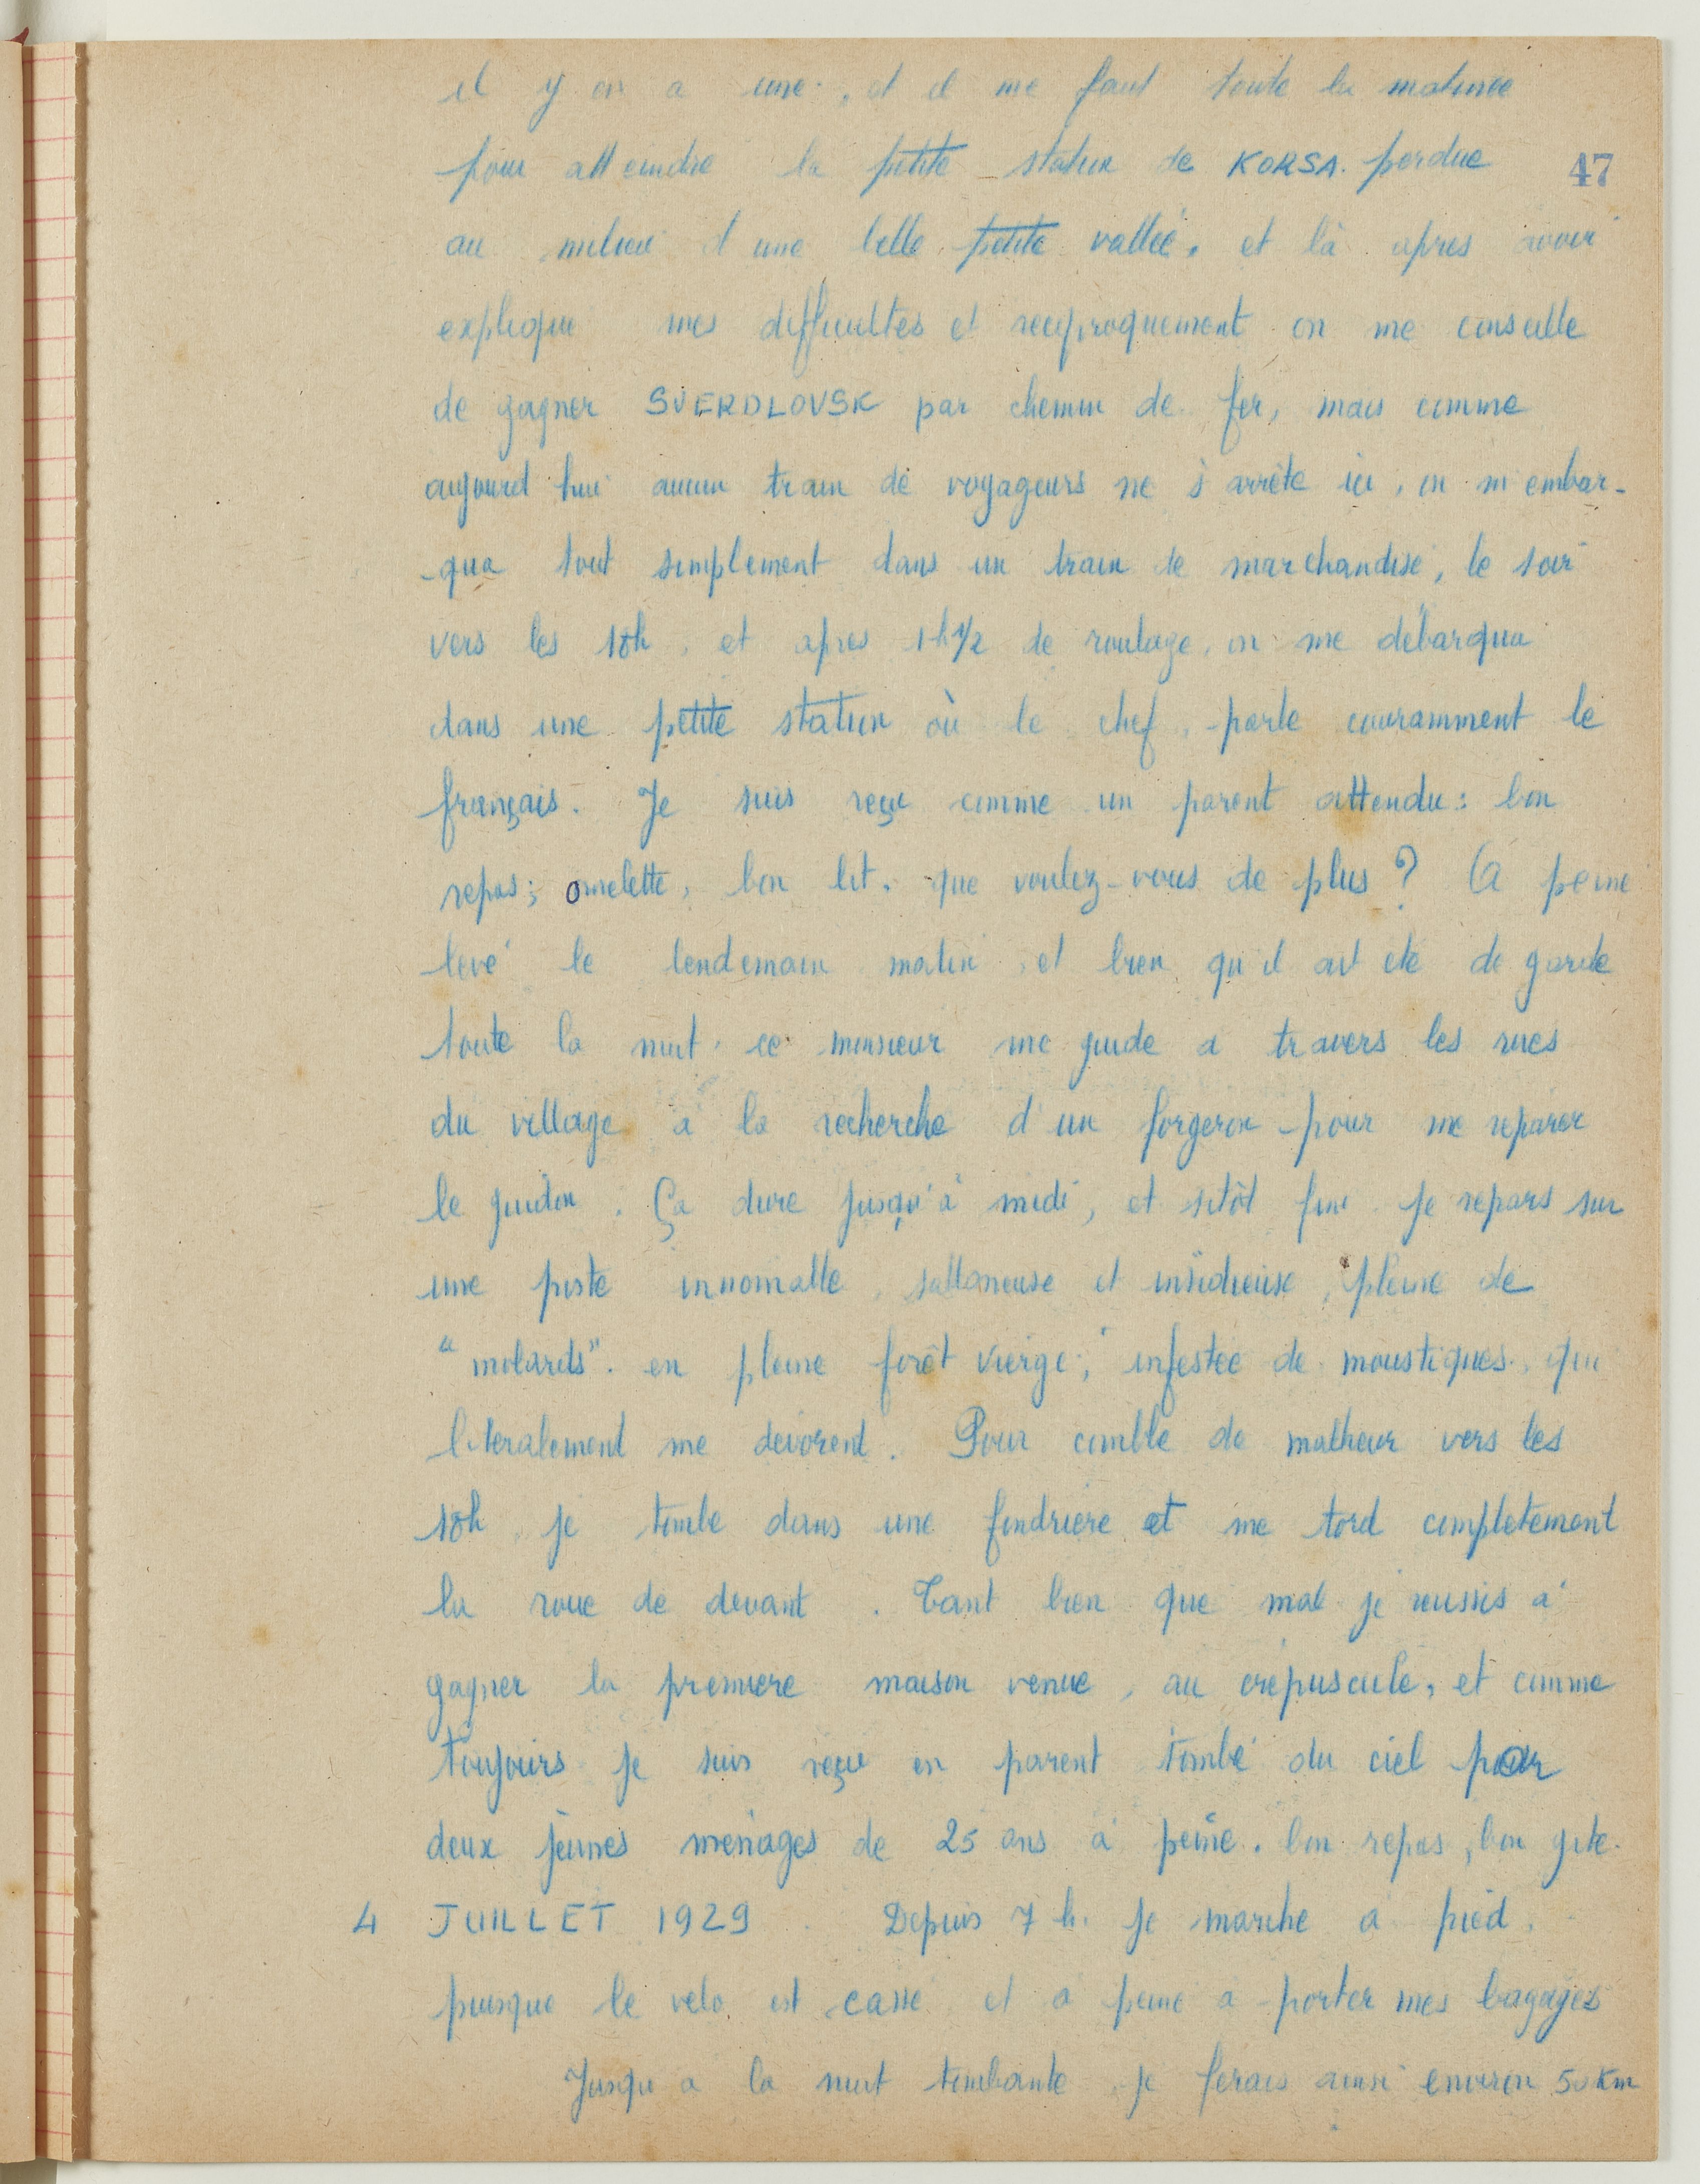 il y en a une, et il me faut toute la matinée
pour atteindre la petite station de KORSA. perdue
47
au milieu d'une belle petite vallée. et là apres avoir
explique mes difficultés et reciproquement on me conseille
de gagner SVERDLOVSK par chemin de fer, mais comme
aujourd'hui aucun train de voyageurs ne s'arrête ici, on m'embar-
-qua tout simplement dans un train de marchandise, le soir
vers les 18h, et apres 1h1/2 de roulage, on me débarqua
dans une petite station où le chef, parle couramment le
français. Je suis reçu comme un parent attendu: bon
repas; omelette, bon lit. que voulez-vous de plus? A peine
levé le lendemain matin, et bien qu'il ait ete de garde
toute la nuit, ce monsieur me guide a travers les rues
du village à la recherche d'un forgeron pour me reparer
le guidon. Ça dure jusqu'à midi, et sitôt fini je repars sur
une piste innomable, sabloneuse et insidieuse, pleine de
"molards". en pleine forêt vierge, infestée de moustiques, qui
literalement me dévorent. Pour comble de malheur vers les
18h je tombe dans une fondriere et me tord completement
la roue de devant. Tant bien que mal je reussis à
gagner la premiere maison venue, au crépuscule, et comme
toujours je suis reçu en parent tombé du ciel par
deux jeunes ménages de 25 ans à peine. bon repas, bon gite.
4 JUILLET 1929. Depuis 7 h. je marche à pied.
puisque le velo est cassé et a peine a porter mes bagages
Jusqu'a la nuit tombante je ferais ainsi environ 50 Km